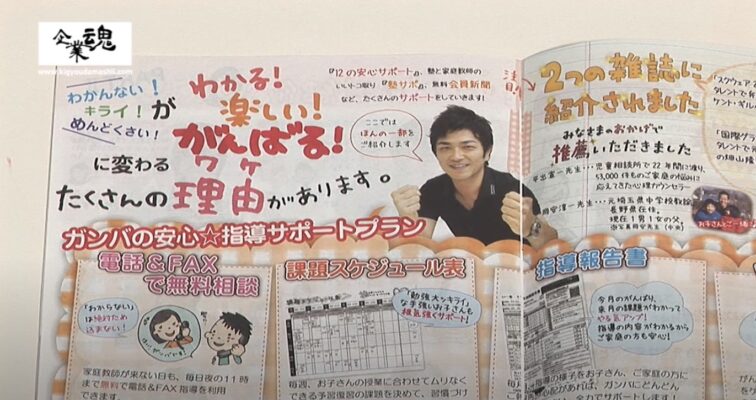 企業魂
www.kigyoudamashii.com
わかんない！
キライ！が
めんどくさい！
わかる！
楽しい！
がんばる！
に変わる
ワケ
たくさんの理由があります。
『12の安心サポート』、塾と家庭教師の
いいトコ取り『塾サポ』、無料会員新聞
など、たくさんのサポートをしていきます！
ここでは
ほんの一部を
ご紹介します
2つの雑誌に
紹介されました
みなさまのおかげで
推薦もいただきました
児童相談所で22年間に渡り、
53,000件ものご家庭の悩みに
応えてきた心理カウンセラー
元埼玉県中学校教諭
長野県在住。
現在1男1女の父。
「スクウェア
タレントで
「国際グラ
タレントで元
ガンバの安心☆指導サポートプラン
電話＆FAX
で無料相談
「わからない」
は絶対ため
込まない！
家庭教師が来ない日も、毎日夜の11時
まで無料で電話＆FAX指導を利用
できます。
課題スケジュール表
「勉強大ッキライ」
な手強いお子さんも
根気強くサポート！
毎週、お子さんの授業に合わせてムリなく
できる予習復習の課題を決めて、習慣づけ
指導報告書
今月のがんばり、
来月の課題がわかって
やる気アップ！
指導の内容がわかるから
ご家庭の方も安心！
指導の様子をお子さん、ご家庭の方に
心配があれば、ガンバにどんどん
全力でサポートします！